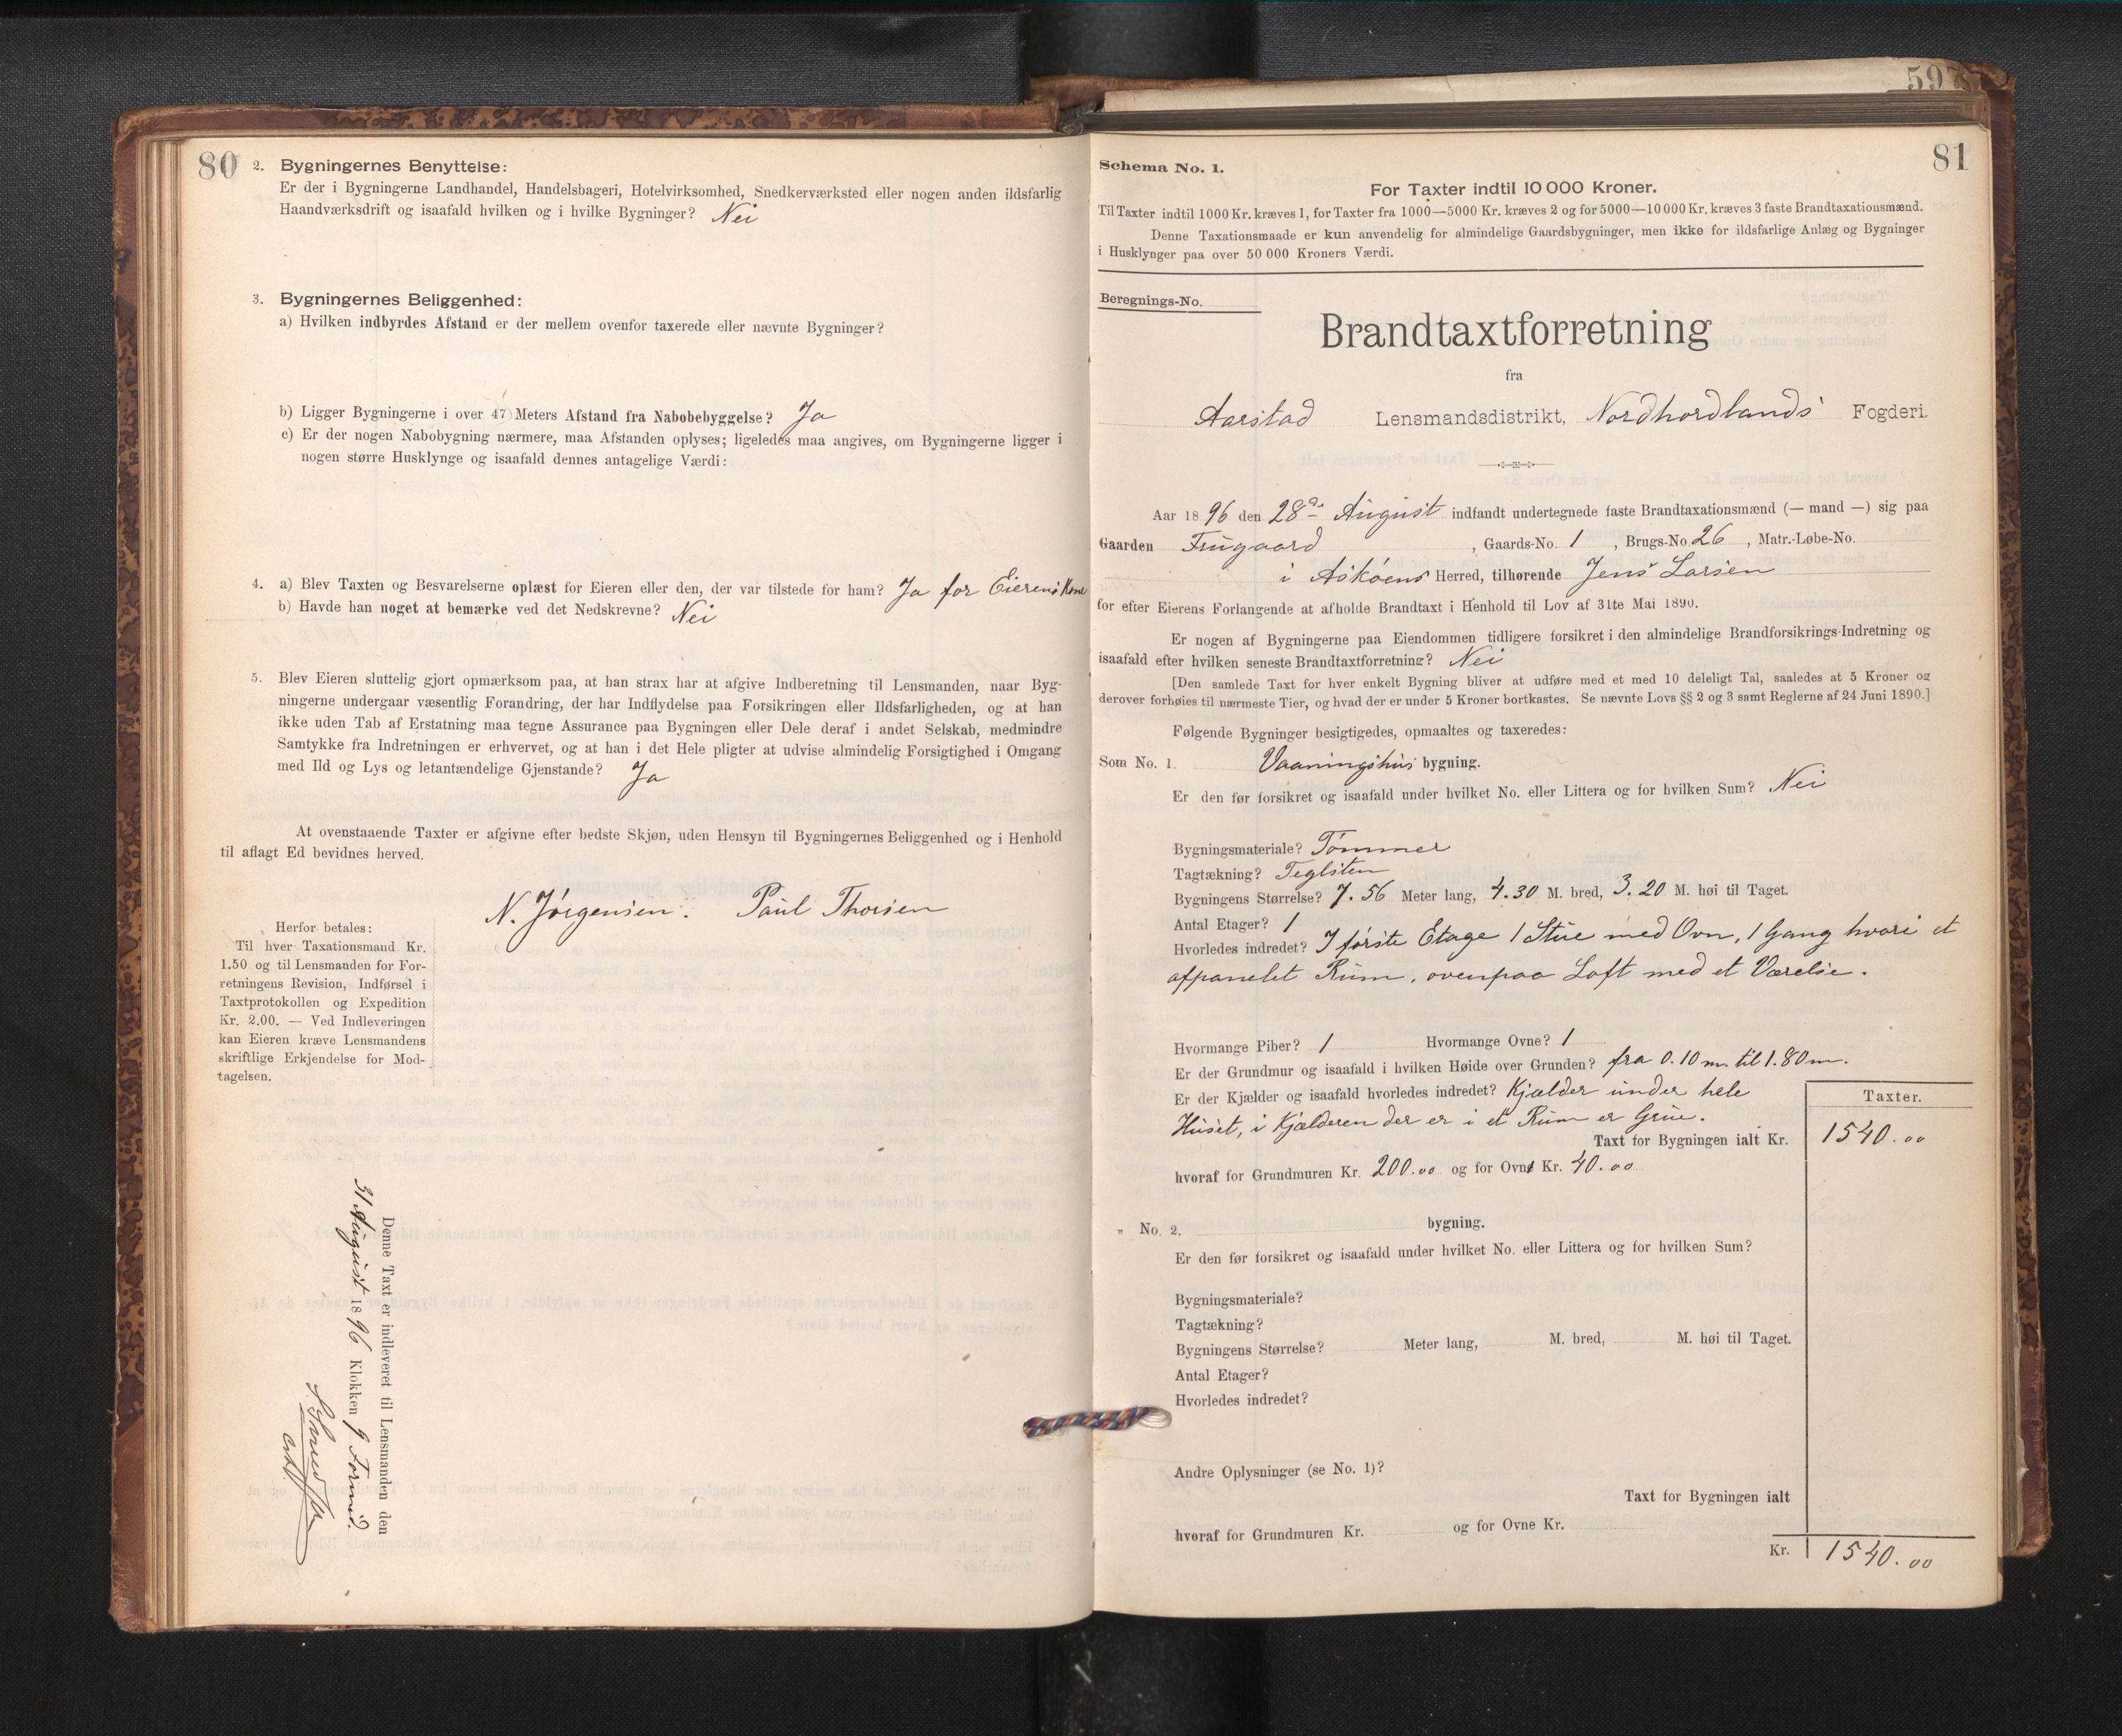 80
2. Bygningernes Benyttelse:
Er der i Bygningerne Landhandel, Handelsbageri, Hotelvirksomhed, Snedkerværksted eller nogen anden ildsfarlig
Haandværksdrift og isaafald hvilken og i hvilke Bygninger? Nei
3. Bygningernes Beliggenhed:
a) Hvilken indbyrdes Afstand er der mellem ovenfor taxerede eller nævnte Bygninger?
b) Ligger Bygningerne i over 47 Meters Afstand fra Nabobebyggelse? Ja
c) Er der nogen Nabobygning nærmere, maa Afstanden oplyses; ligeledes maa angives, om Bygningerne ligger i
nogen større Husklynge og isaafald dennes antagelige Værdi:
4. a) Blev Taxten og Besvarelserne oplæst for Eieren eller den, der var tilstede for ham? Ja for Eierens Kone
b) Havde han noget at bemærke ved det Nedskrevne? Nei
5. Blev Eieren sluttelig gjort opmærksom paa, at han strax har at afgive Indberetning til Lensmanden, naar Byg-
ningerne undergaar væsentlig Forandring, der har Indflydelse paa Forsikringen eller Ildsfarligheden, og at han
ikke uden Tab af Erstatning maa tegne Assurance paa Bygningen eller Dele deraf i andet Selskab, medmindre
Samtykke fra Indretningen er erhvervet, og at han i det Hele pligter at udvise almindelig Forsigtighed i Omgang
med Ild og Lys og letantændelige Gjenstande? Ja
At ovenstaaende Taxter er afgivne efter bedste Skjøn, uden Hensyn til Bygningernes Beliggenhed og i Henhold
til aflagt Ed bevidnes herved.
N. Jørgensen. Paul Thorsen
Herfor betales:
Til hver Taxationsmand Kr.
1.50 og til Lensmanden for For-
retningens Revision, Indførsel i
Taxtprotokollen og Expedition
Kr. 2.00. — Ved Indleveringen
kan Eieren kræve Lensmandens
skriftlige Erkjendelse for Mod-
tagelsen.
Denne Taxt er indleveret til Lensmanden den
31 August 1896 Klokken 9 Formid.
597
81
Schema No. 1.
For Taxter indtil 10 000 Kroner.
Til Taxter indtil 1000 Kr. kræves 1, for Taxter fra 1000—5000 Kr. kræves 2 og for 5000—10 000 Kr. kræves 3 faste Brandtaxationsmænd.
Denne Taxationsmaade er kun anvendelig for almindelige Gaardsbygninger, men ikke for ildsfarlige Anlæg og Bygninger
i Husklynger paa over 50 000 Kroners Værdi.
Beregnings-No.
Brandtaxtforretning
fra
Aarstad Lensmandsdistrikt, Nordhordlands Fogderi.
Aar 1896 den 28de August indfandt undertegnede faste Brandtaxationsmænd (— mand —) sig paa
Gaarden Frugaard, Gaards-No. 1, Brugs-No. 26, Matr.-Løbe-No.
i Askøens Herred, tilhørende Jens Larsen
for efter Eierens Forlangende at afholde Brandtaxt i Henhold til Lov af 31te Mai 1890.
Er nogen af Bygningerne paa Eiendommen tidligere forsikret i den almindelige Brandforsikrings-Indretning og
isaafald efter hvilken seneste Brandtaxtforretning? Nei
[Den samlede Taxt for hver enkelt Bygning bliver at udføre med et med 10 deleligt Tal, saaledes at 5 Kroner og
derover forhøies til nærmeste Tier, og hvad der er under 5 Kroner bortkastes. Se nævnte Lovs §§ 2 og 3 samt Reglerne af 24 Juni 1890.]
Følgende Bygninger besigtigedes, opmaaltes og taxeredes:
Som No. 1. Vaaningshus bygning.
Er den før forsikret og isaafald under hvilket No. eller Littera og for hvilken Sum? Nei
Bygningsmateriale? Tømmer
Tagtækning? Teglsten
Bygningens Størrelse? 7.56 Meter lang, 4.30 M. bred, 3.20 M. høi til Taget.
Antal Etager? 1
Hvorledes indredet? I første Etage 1 Stue med Ovn, 1 Gang hvori et
afpanelet Rum, ovenpaa Loft med et Værelse.
Hvormange Piber? 1 Hvormange Ovne? 1
Er der Grundmur og isaafald i hvilken Høide over Grunden? fra 0.10 m til 1.80 m.
Er der Kjælder og isaafald hvorledes indredet? Kjælder under hele
Huset, i Kjælderen der er i et Rum er Grue.
Taxter.
Taxt for Bygningen ialt Kr. 1540.00
hvoraf for Grundmuren Kr. 200.00 og for Ovne Kr. 40.00
" No. 2. bygning.
Er den før forsikret og isaafald under hvilket No. eller Littera og for hvilken Sum?
Bygningsmateriale?
Tagtækning?
Bygningens Størrelse? Meter lang, M. bred, M. høi til Taget.
Antal Etager?
Hvorledes indredet?
Andre Oplysninger (se No. 1)?
Taxt for Bygningen ialt
hvoraf for Grundmuren Kr. og for Ovne Kr.
Kr. 1540.00